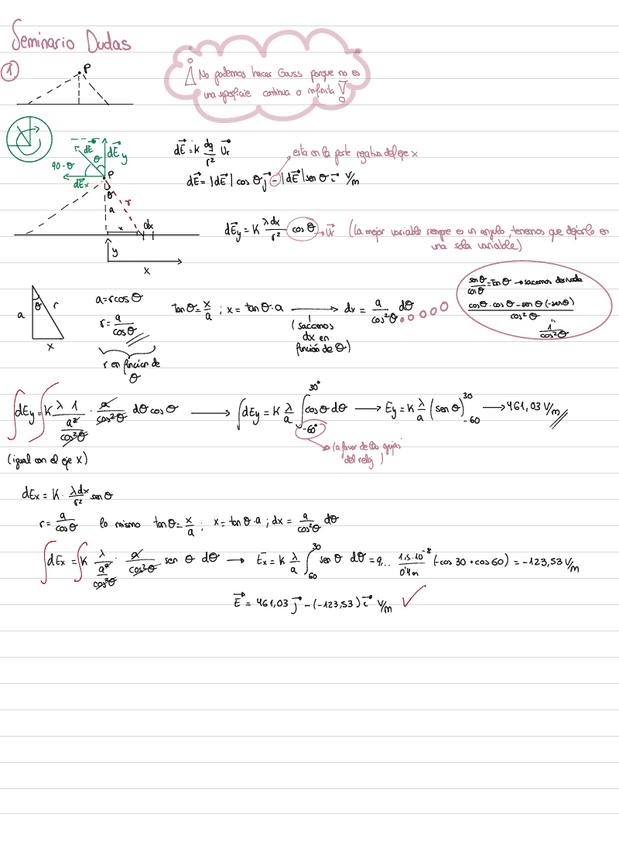 Seminario Dudas
① P
¡ No podemos hacer Gauss porque no es
una superficie continua o infinita !
dE dEy
θ
90-θ
dEx P
θ
a r
x dx
y
x
dE⃗ = K dq/r² U⃗r
esta en la parte negativa del eje x
dE⃗ = |dE⃗| cos θ j⃗ - |dE⃗| sen θ i⃗ V/m
dE⃗y = K λdx/r² cos θ → U⃗r (La mejor variable siempre es un angulo, tenemos que dejarlo en
una sola variable)
a θ r
x
a = r cos θ
r = a/cos θ
r en funcion de
θ
tan θ = x/a ; x = tan θ · a → dx = a/cos²θ dθ
( sacamos
dx en
función de θ )
sen θ/cos θ = tan θ → sacamos derivada
cos θ · cos θ - sen θ (-sen θ)/cos²θ
"
1/cos²θ
∫dEy = ∫K λ 1/(a²/cos²θ) · a/cos²θ dθ cos θ → ∫dEy = K λ/a ∫₋₆₀°³⁰° cos θ dθ → Ey = K λ/a (sen θ)₋₆₀³⁰ → 461,03 V/m
(a favor de las agujas
del reloj)
(igual con el eje x)
dEx = K · λdx/r² sen θ
r = a/cos θ lo mismo tan θ = x/a ; x = tan θ · a ; dx = a/cos²θ dθ
∫dEx = ∫K λ/(a²/cos²θ) · a/cos²θ sen θ dθ → Ex = K λ/a ∫₆₀³⁰ sen θ dθ = 9... 1,5·10⁻⁸/0'4m (-cos 30 + cos 60) = -123,53 V/m
E⃗ = 461,03 j⃗ - (-123,53) i⃗ V/m ✓